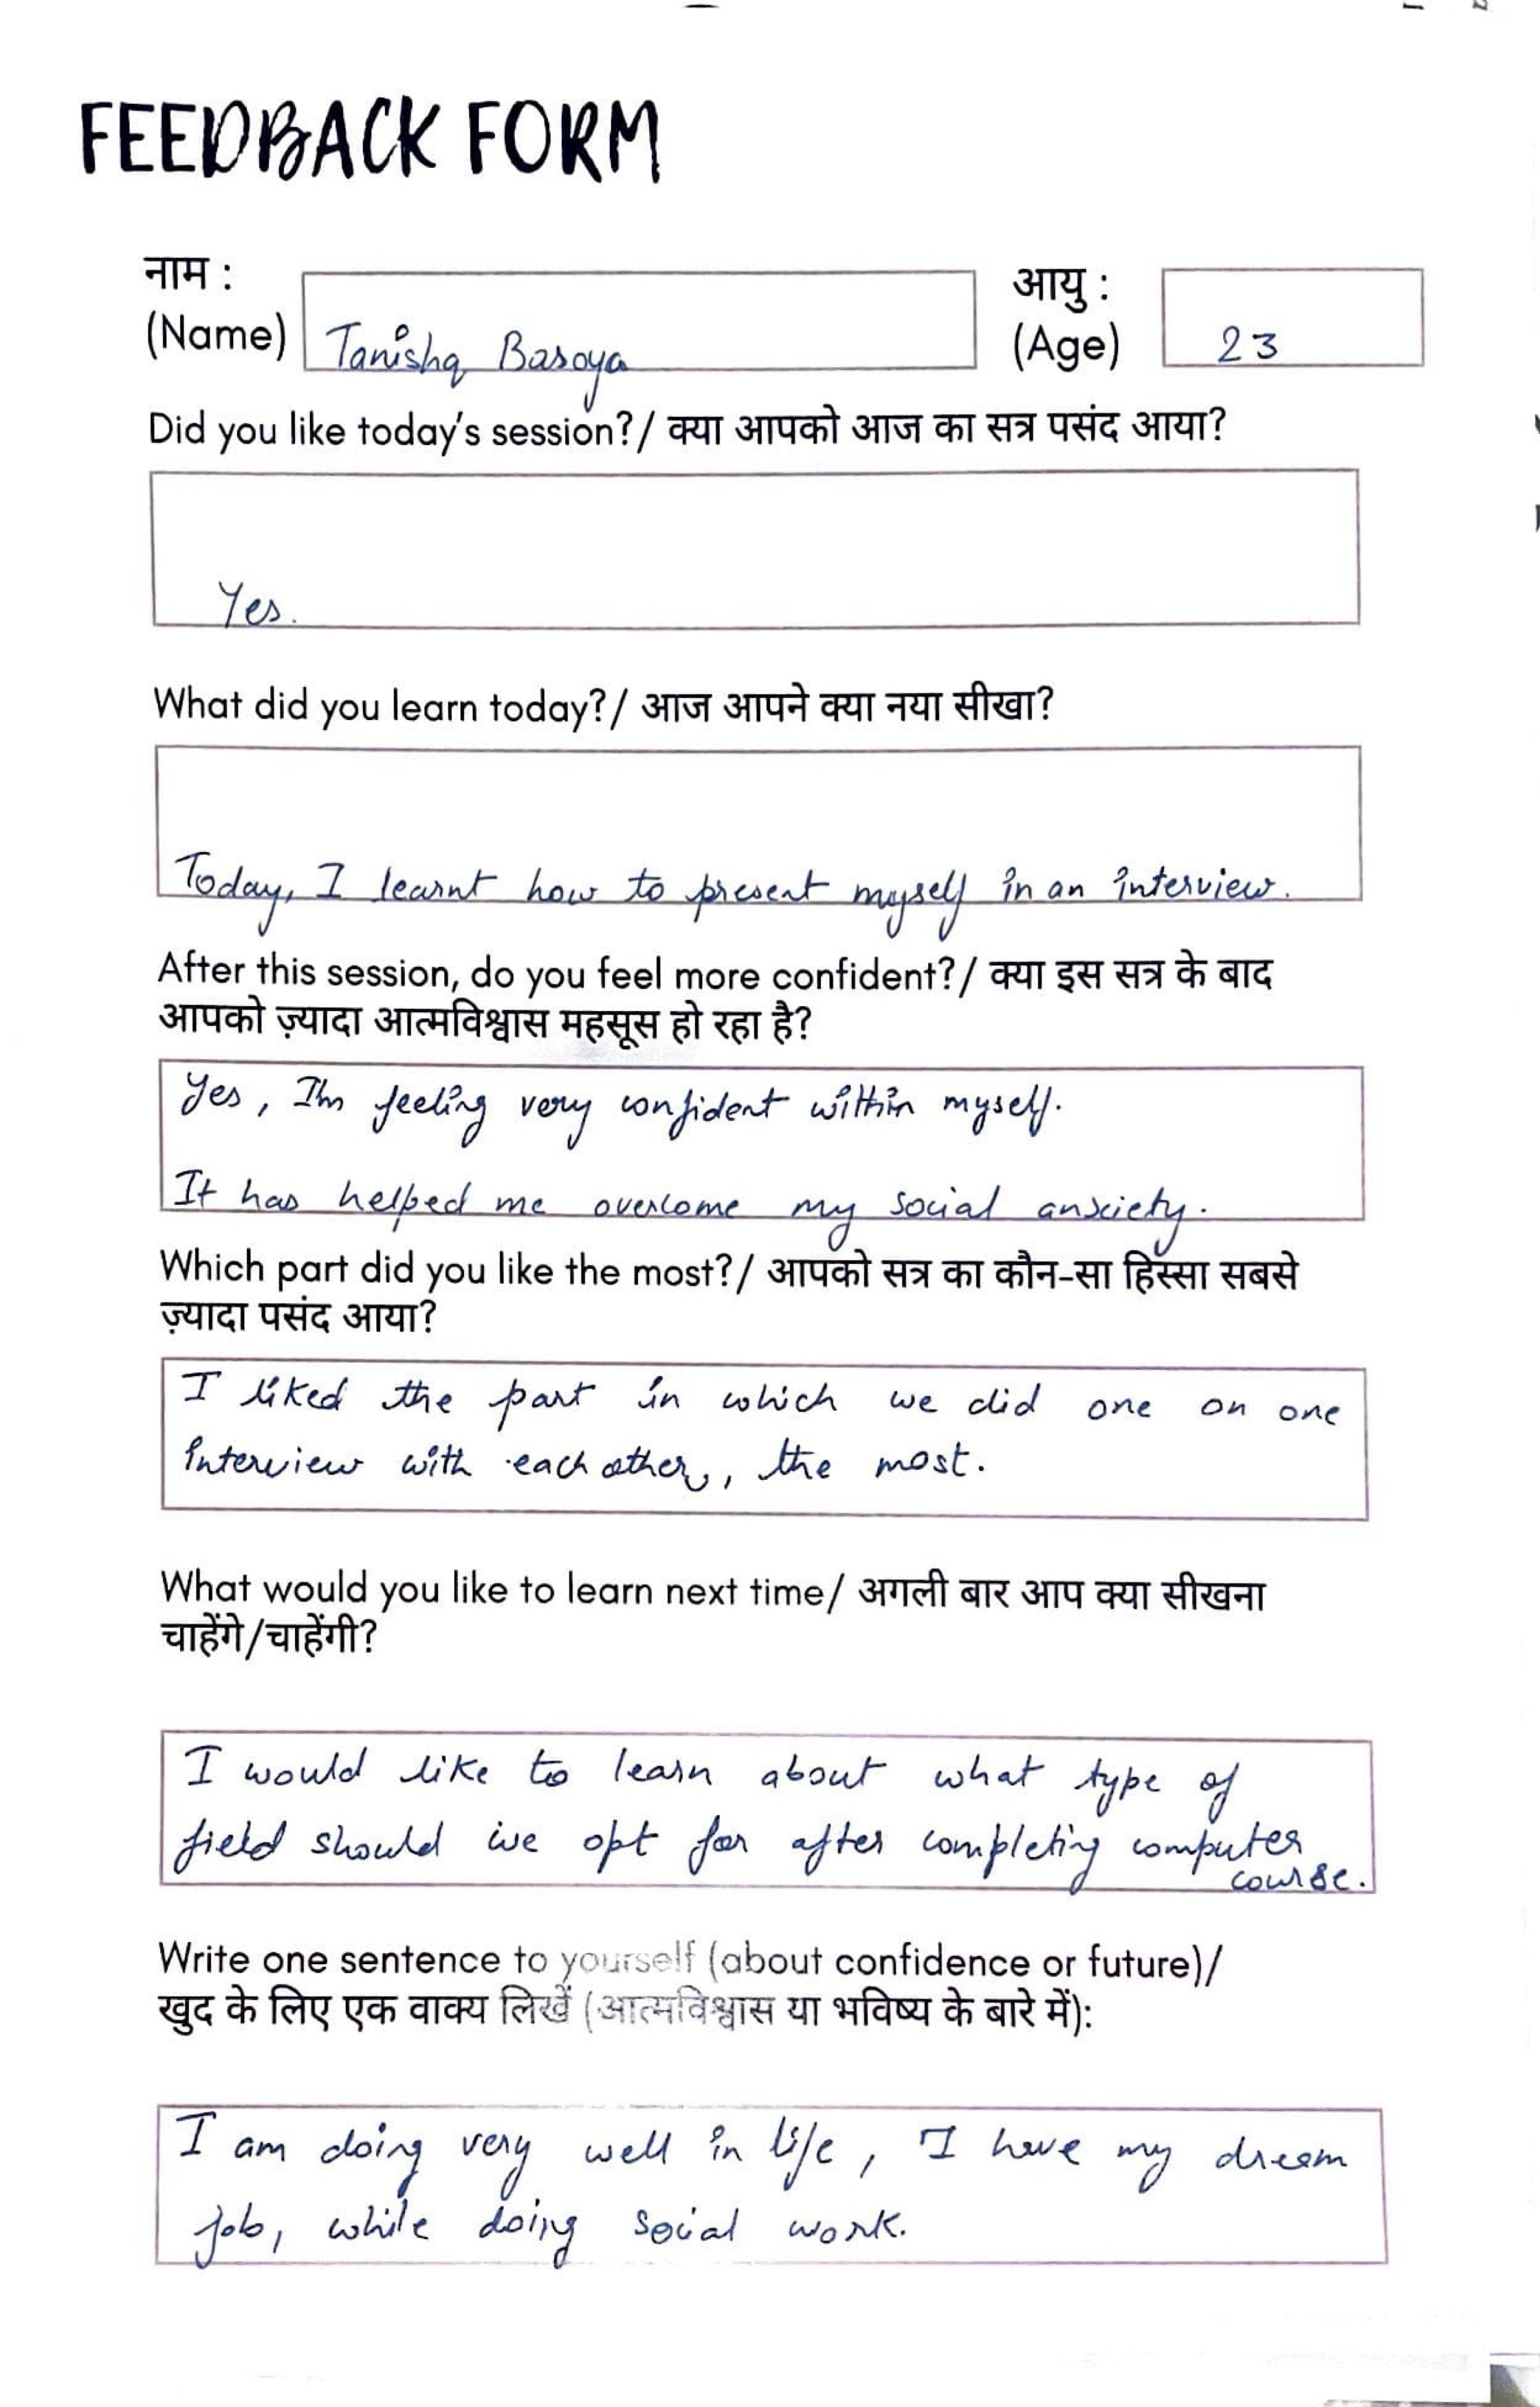 FEEDBACK FORM
नाम :
(Name)
Tanishq Basoya
आयु :
(Age)
23
Did you like today's session?/ क्या आपको आज का सत्र पसंद आया?
Yes.
What did you learn today?/ आज आपने क्या नया सीखा?
Today, I learnt how to present myself in an interview.
After this session, do you feel more confident?/ क्या इस सत्र के बाद
आपको ज़्यादा आत्मविश्वास महसूस हो रहा है?
Yes, I'm feeling very confident within myself.
It has helped me overcome my social anxiety.
Which part did you like the most?/ आपको सत्र का कौन-सा हिस्सा सबसे
ज़्यादा पसंद आया?
I liked the part in which we did one on one
interview with each other, , the most.
What would you like to learn next time/ अगली बार आप क्या सीखना
चाहेंगे/चाहेंगी?
I would like to learn about what type of
field should we opt for after completing computer
course.
Write one sentence to yourself (about confidence or future)/
खुद के लिए एक वाक्य लिखें (आत्मविश्वास या भविष्य के बारे में):
I am doing very well in life, I have my dream
job, while doing social work.